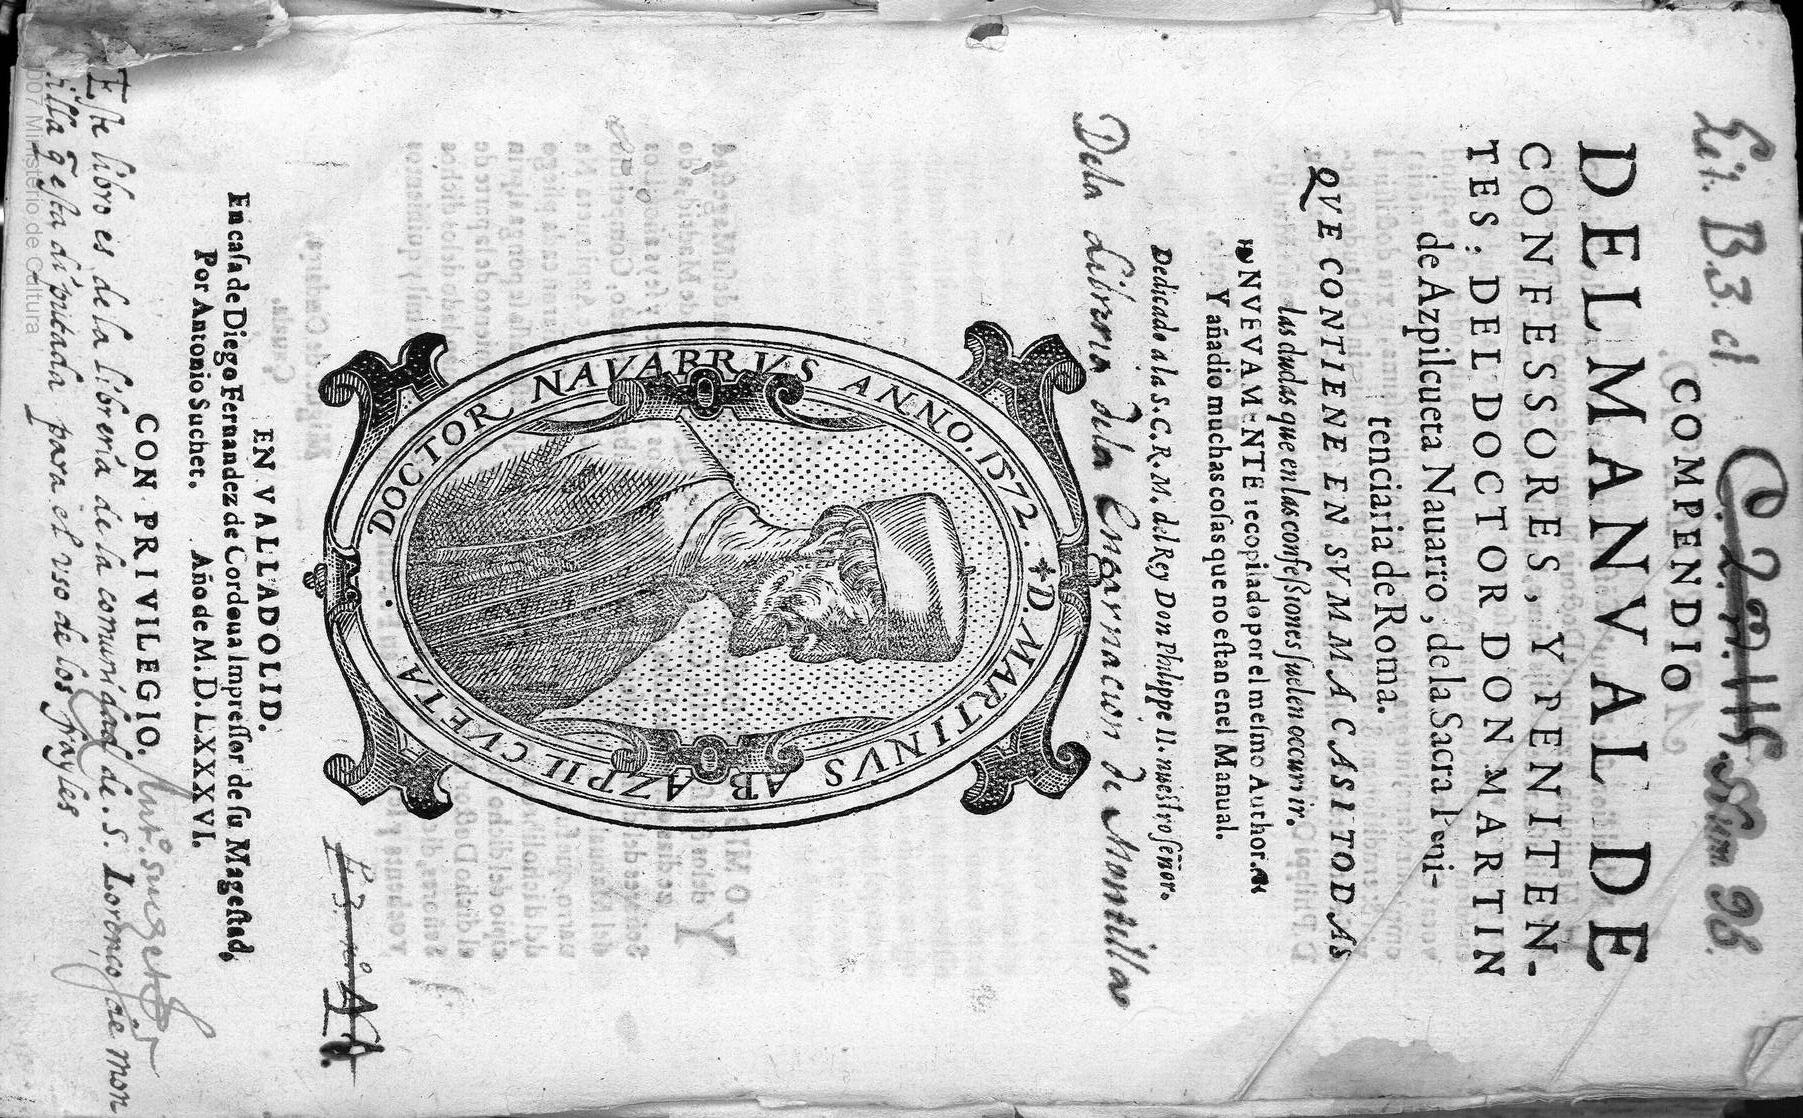 Lit. B.3. cl
Num 96.
COMPENDIO
DEL MANVAL DE
CONFESSORES, Y PENITEN-
TES: DEL DOCTOR DON MARTIN
de Azpilcueta Nauarro, de la Sacra Peni-
tenciaria de Roma.
QVE CONTIENE EN SVMMA CASI TODAS
las dudas que en las confeßiones ſuelen occurrir.
NVEVAMENTE recopilado por el meſmo Author.
Y añadio muchas coſas que no eſtan en el Manual.
Dedicado a la S.C.R.M. del Rey Don Philippe II. nueſtro ſeñor.
Dela Libreria dela Encarnacion de Montilla
✝D. MARTINVS AB AZPIL CVETA. DOCTOR NAVARRVS ANNO. 1572.
EN VALLADOLID.
En caſa de Diego Fernandez de Cordoua Impreſſor de ſu Mageſtad,
Por Antonio Suchet. Año de M.D.LXXXVI.
CON PRIVILEGIO.
Eſte libro es de la libreria de la comunidad de .S. Lorenço de mon
tilla q̃ eſta diputada para el vso de los frayles
2007 Ministerio de Cultura